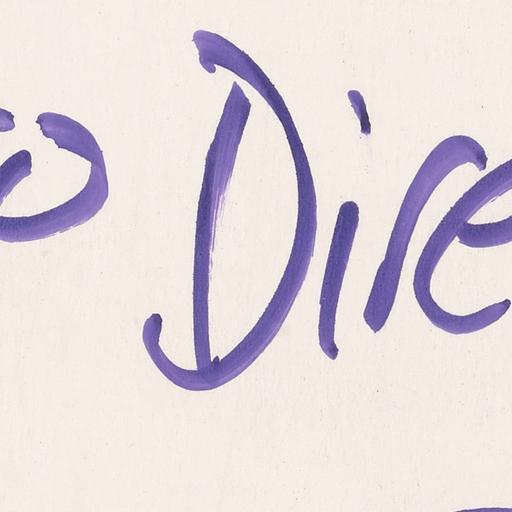 o Dire